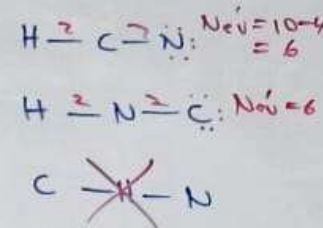 H —2 C —2 N̈: Nev' = 10-4
= 6
H —2 N —2 C̈: Nev' = 6
C — H — N